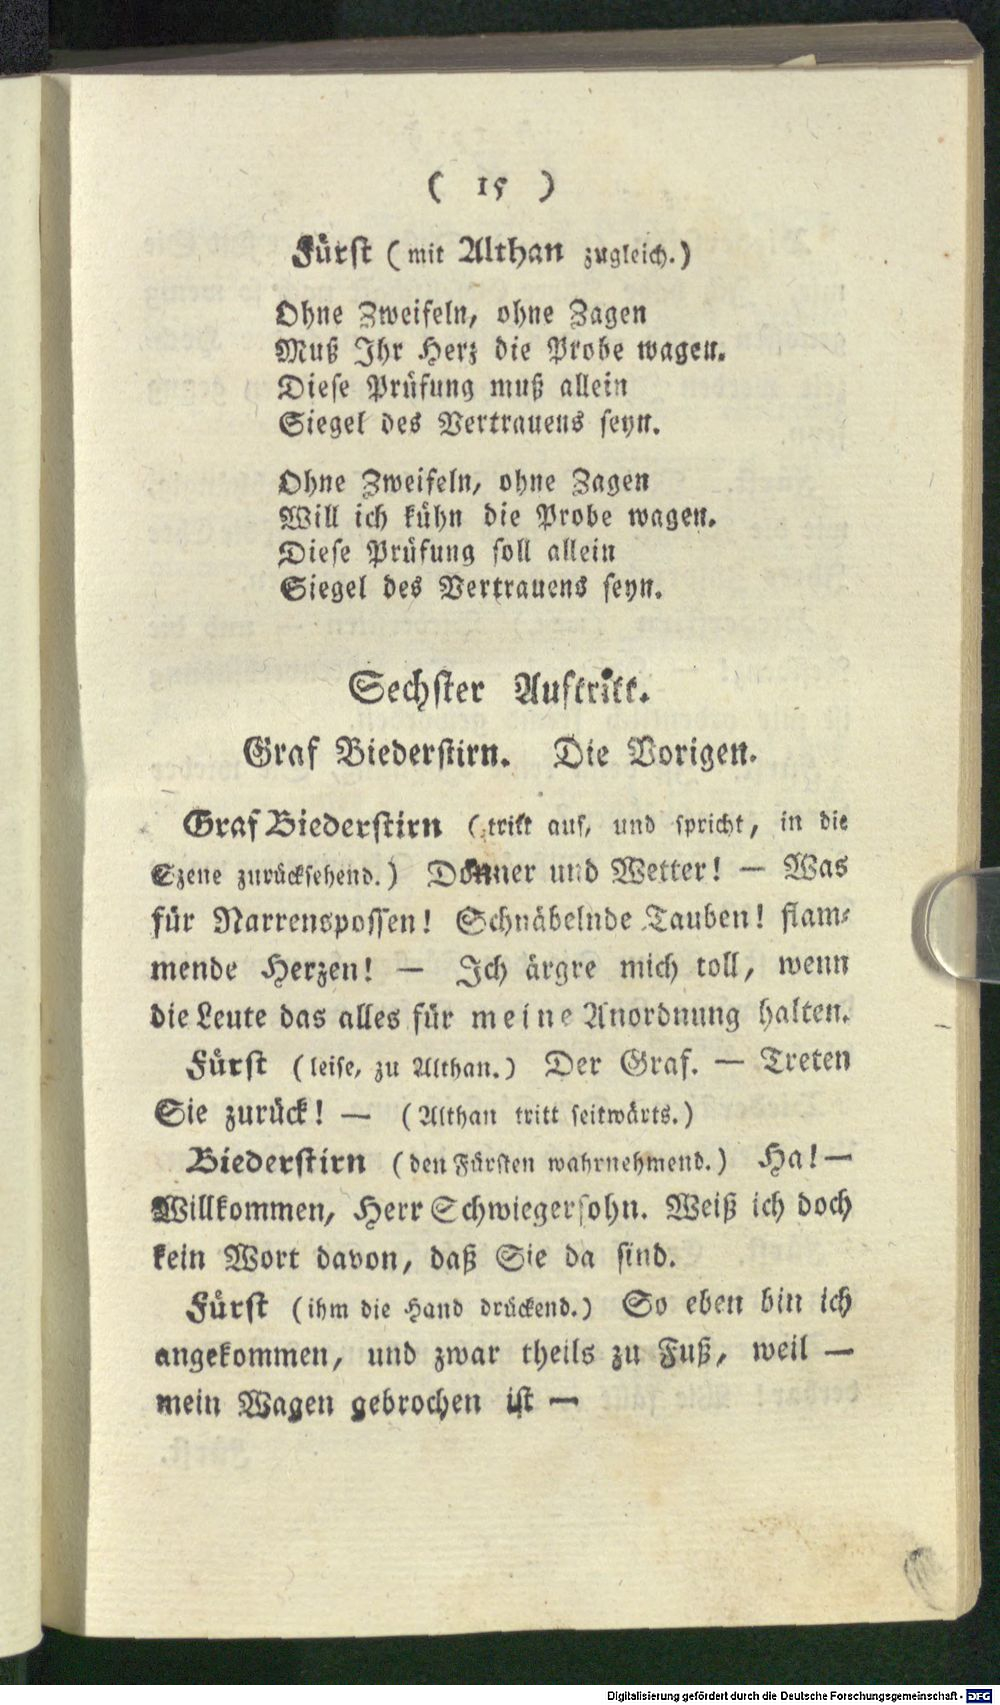 ( 15 )
Fürst (mit Althan zugleich.)
Ohne Zweifeln, ohne Zagen
Muß Ihr Herz die Probe wagen.
Diese Prüfung muß allein
Siegel des Vertrauens seyn.
Ohne Zweifeln, ohne Zagen
Will ich kühn die Probe wagen.
Diese Prüfung soll allein
Siegel des Vertrauens seyn.
Sechster Auftritt.
Graf Biederstirn. Die Vorigen.
Graf Biederstirn (tritt auf, und spricht, in die
Szene zurücksehend.) Donner und Wetter! — Was
für Narrenspossen! Schnäbelnde Tauben! flam-
mende Herzen! — Ich ärgre mich toll, wenn
die Leute das alles für meine Anordnung halten.
Fürst (leise, zu Althan.) Der Graf. — Treten
Sie zurück! — (Althan tritt seitwärts.)
Biederstirn (den Fürsten wahrnehmend.) Ha! —
Willkommen, Herr Schwiegersohn. Weiß ich doch
kein Wort davon, daß Sie da sind.
Fürst (ihm die Hand drückend.) So eben bin ich
angekommen, und zwar theils zu Fuß, weil —
mein Wagen gebrochen ist —
Digitalisierung gefördert durch die Deutsche Forschungsgemeinschaft - DFG